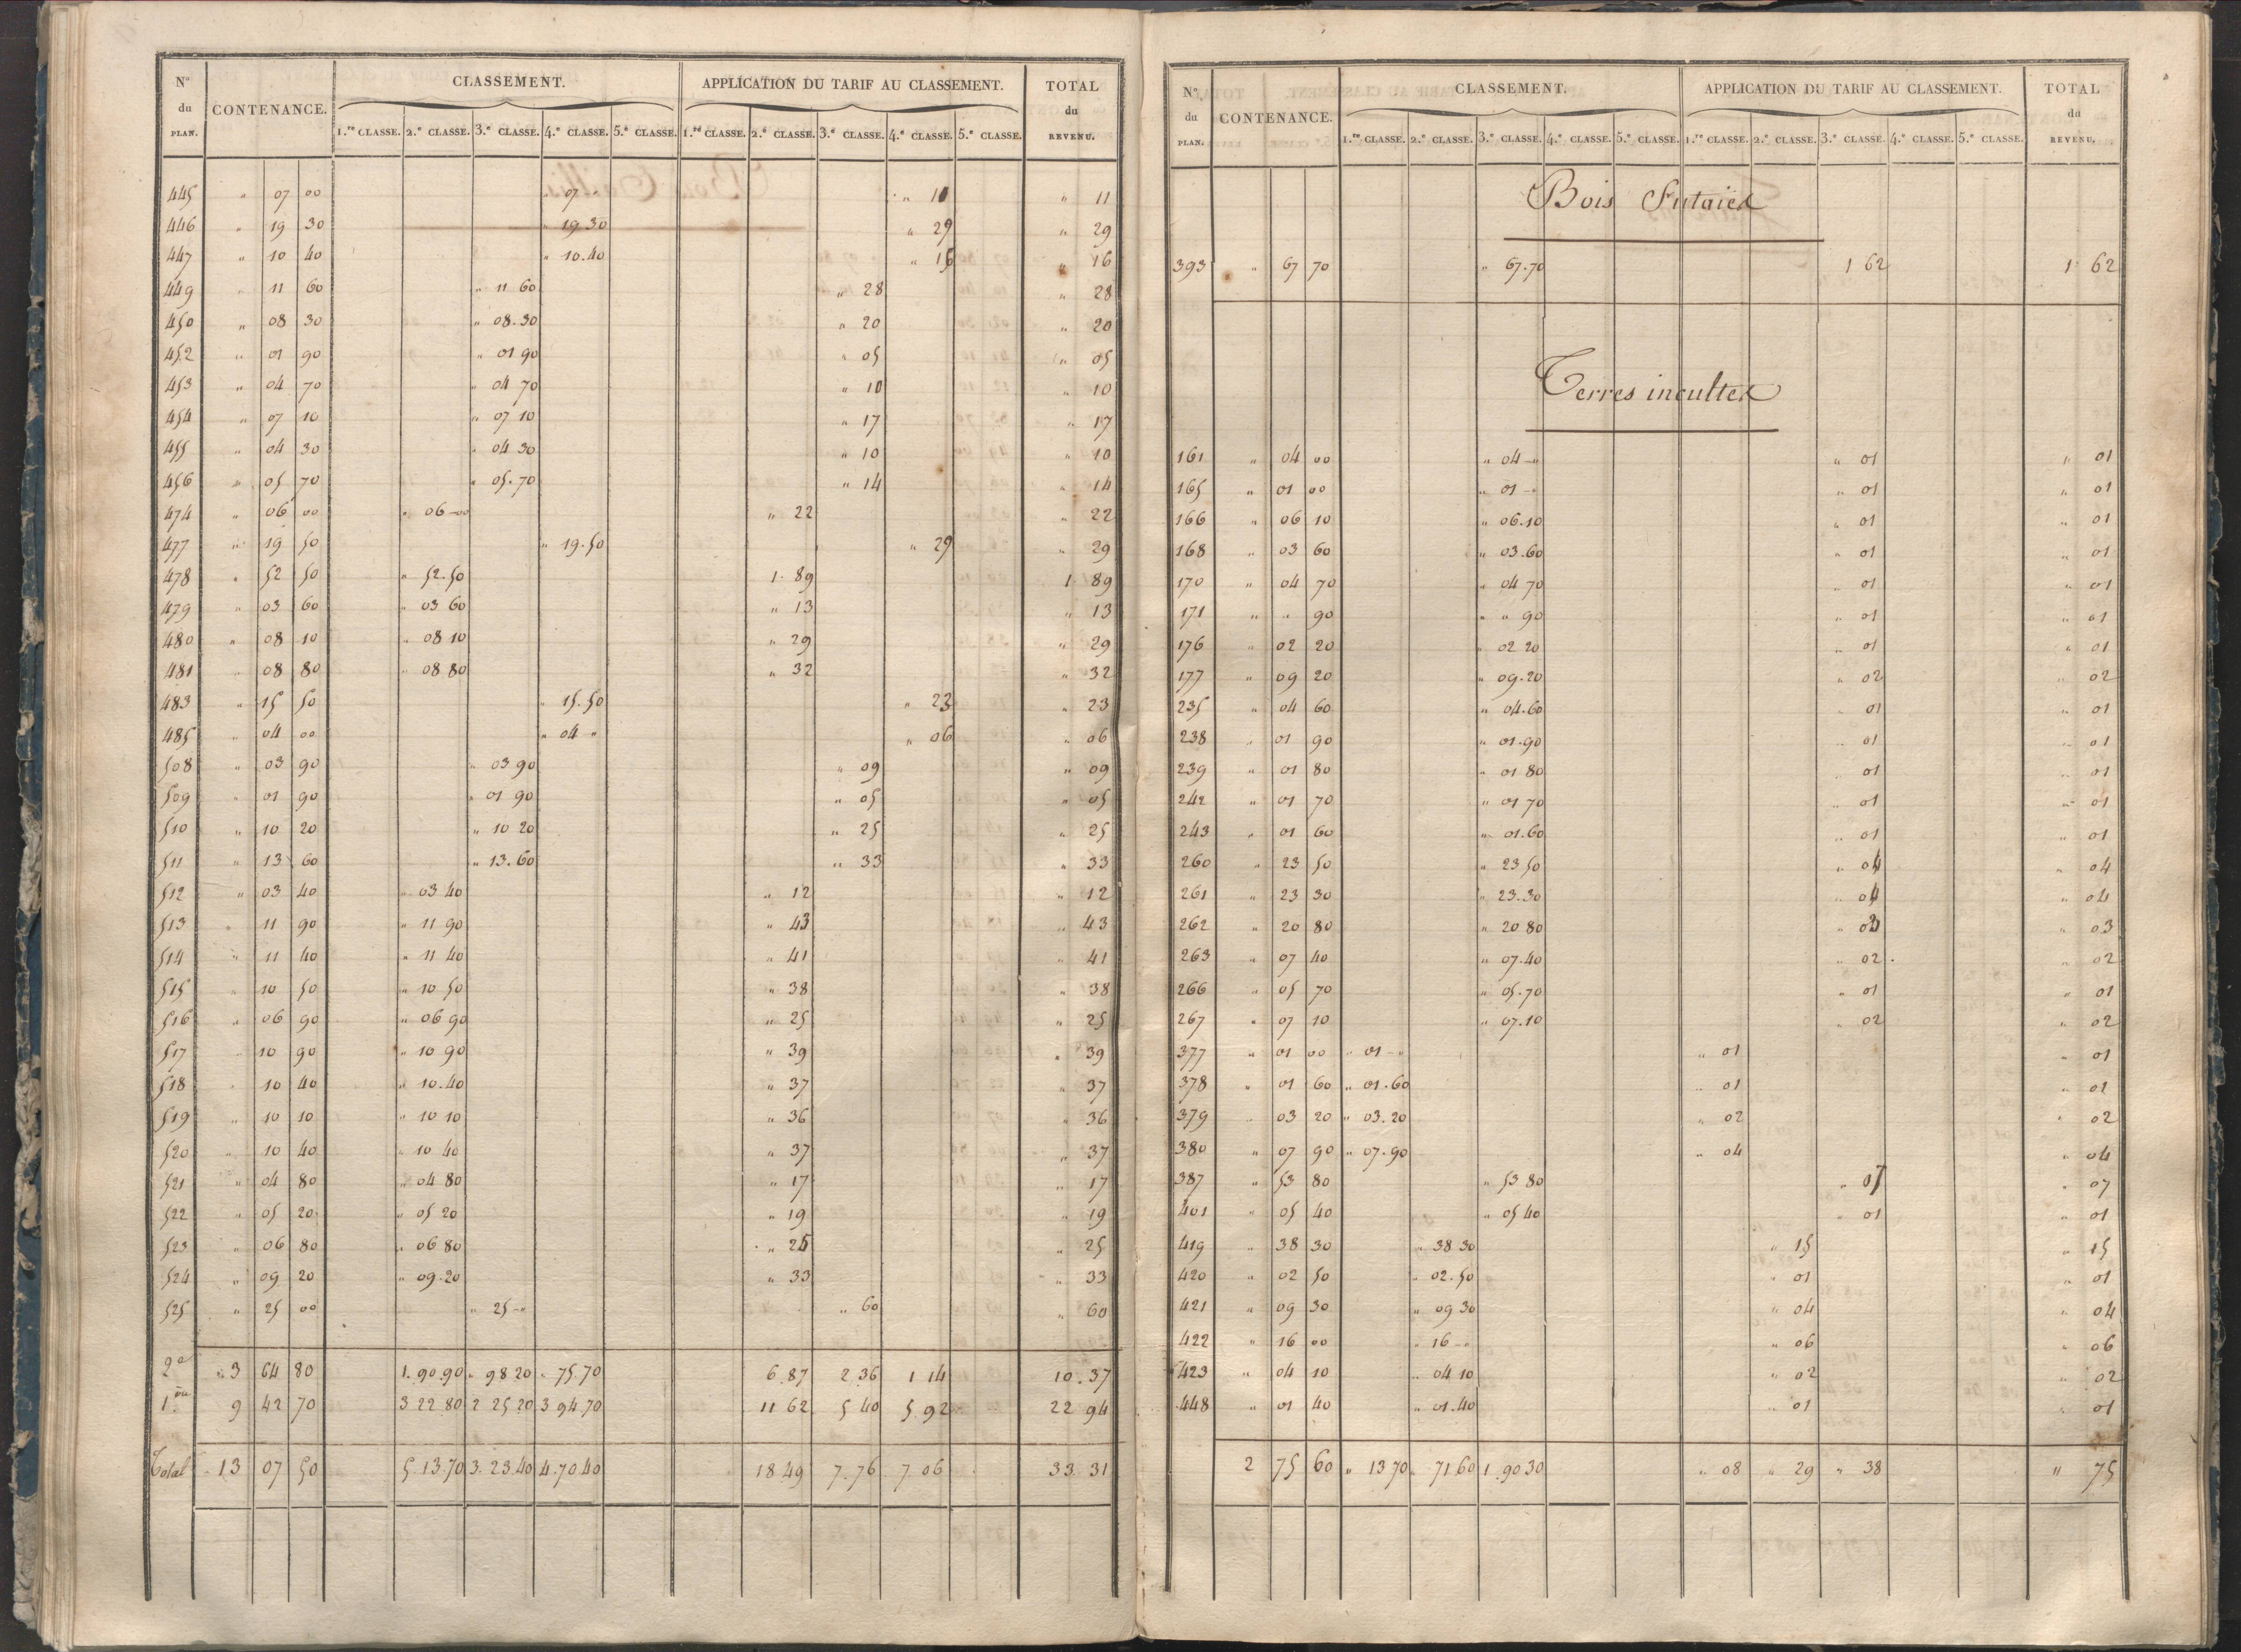 Nº du PLAN. CONTENANCE. CLASSEMENT. APPLICATION DU TARIF AU CLASSEMENT. TOTAL du REVENU.
1.re CLASSE. 2.e CLASSE. 3.e CLASSE. 4.e CLASSE. 5.e CLASSE. 1.re CLASSE. 2.e CLASSE. 3.e CLASSE. 4.e CLASSE. 5.e CLASSE.
445 " 07 00 " 07 " " 11 " 11
446 " 19 30 " 19.30 " 29 " 29
447 " 10 40 " 10.40 " 16 " 16
449 " 11 60 " 11 60 " 28 " 28
450 " 08 30 " 08.30 " 20 " 20
452 " 01 90 " 01 90 " 05 " 05
453 " 04 70 " 04 70 " 10 " 10
454 " 07 10 " 07 10 " 17 " 17
455 " 04 30 " 04 30 " 10 " 10
456 " 05 70 " 05.70 " 14 " 14
474 " 06 00 " 06-00 " 22 " 22
477 " 19 50 " 19.50 " 29 " 29
478 " 52 50 " 52.50 1. 89 1. 89
479 " 03 60 " 03 60 " 13 " 13
480 " 08 10 " 08 10 " 29 " 29
481 " 08 80 " 08 80 " 32 " 32
483 " 15 50 " 15.50 " 23 " 23
485 " 04 00 " 04 " " 06 " 06
508 " 03 90 " 03 90 " 09 " 09
509 " 01 90 " 01 90 " 05 " 05
510 " 10 20 " 10 20 " 25 " 25
511 " 13 60 " 13.60 " 33 " 33
512 " 03 40 " 03 40 " 12 " 12
513 " 11 90 " 11 90 " 43 " 43
514 " 11 40 " 11 40 " 41 " 41
515 " 10 50 " 10 50 " 38 " 38
516 " 06 90 " 06 90 " 25 " 25
517 " 10 90 " 10 90 " 39 " 39
518 " 10 40 " 10.40 " 37 " 37
519 " 10 10 " 10 10 " 36 " 36
520 " 10 40 " 10 40 " 37 " 37
521 " 04 80 " 04 80 " 17 " 17
522 " 05 20 " 05 20 " 19 " 19
523 " 06 80 " 06 80 " 25 " 25
524 " 09 20 " 09.20 " 33 " 33
525 " 25 00 " 25-" " 60 " 60
2e " 3 64 80 1.90.90 " 98 20 " 75.70 6.87 2 36 1 14 10.37
1 9 42 70 3 22 80 2 25 20 3 94.70 11 62 5 40 5 92 22 94
Total 13 07 50 5 13.70 3.23.40 4.70.40 18.49 7.76 7.06 33.31
Nº du PLAN. CONTENANCE. CLASSEMENT. APPLICATION DU TARIF AU CLASSEMENT. TOTAL du REVENU.
1.re CLASSE. 2.e CLASSE. 3.e CLASSE. 4.e CLASSE. 5.e CLASSE. 1.re CLASSE. 2.e CLASSE. 3.e CLASSE. 4.e CLASSE. 5.e CLASSE.
Bois Futaies
393 " 67 70 " 67.70 1 62 1 62
Terres incultes
161 " 04 00 " 04-" " 01 " 01
165 " 01 00 " 01-" " 01 " 01
166 " 06 10 " 06.10 " 01 " 01
168 " 03 60 " 03.60 " 01 " 01
170 " 04 70 " 04 70 " 01 " 01
171 " " 90 " " 90 " 01 " 01
176 " 02 20 " 02 20 " 01 " 01
177 " 09 20 " 09.20 " 02 " 02
235 " 04 60 " 04.60 " 01 " 01
238 " 01 90 " 01.90 " 01 " 01
239 " 01 80 " 01 80 " 01 " 01
242 " 01 70 " 01 70 " 01 " 01
243 " 01 60 " 01.60 " 01 " 01
260 " 23 50 " 23 50 " 04 " 04
261 " 23 30 " 23.30 " 04 " 04
262 " 20 80 " 20 80 " 03 " 03
263 " 07 40 " 07.40 " 02 " 02
266 " 05 70 " 05.70 " 01 " 01
267 " 07 10 " 07.10 " 02 " 02
377 " 01 00 " 01-" " 01 " 01
378 " 01 60 " 01.60 " 01 " 01
379 " 03 20 " 03.20 " 02 " 02
380 " 07 90 " 07.90 " 04 " 04
387 " 53 80 " 53 80 " 07 " 07
401 " 05 40 " 05 40 " 01 " 01
419 " 38 30 " 38 30 " 15 " 15
420 " 02 50 " 02.50 " 01 " 01
421 " 09 30 " 09 30 " 04 " 04
422 " 16 00 " 16-" " 06 " 06
423 " 04 10 " 04 10 " 02 " 02
448 " 01 40 " 01.40 " 01 " 01
2 75 60 " 13 70 " 71 60 1.90 30 " 08 " 29 " 38 " 75